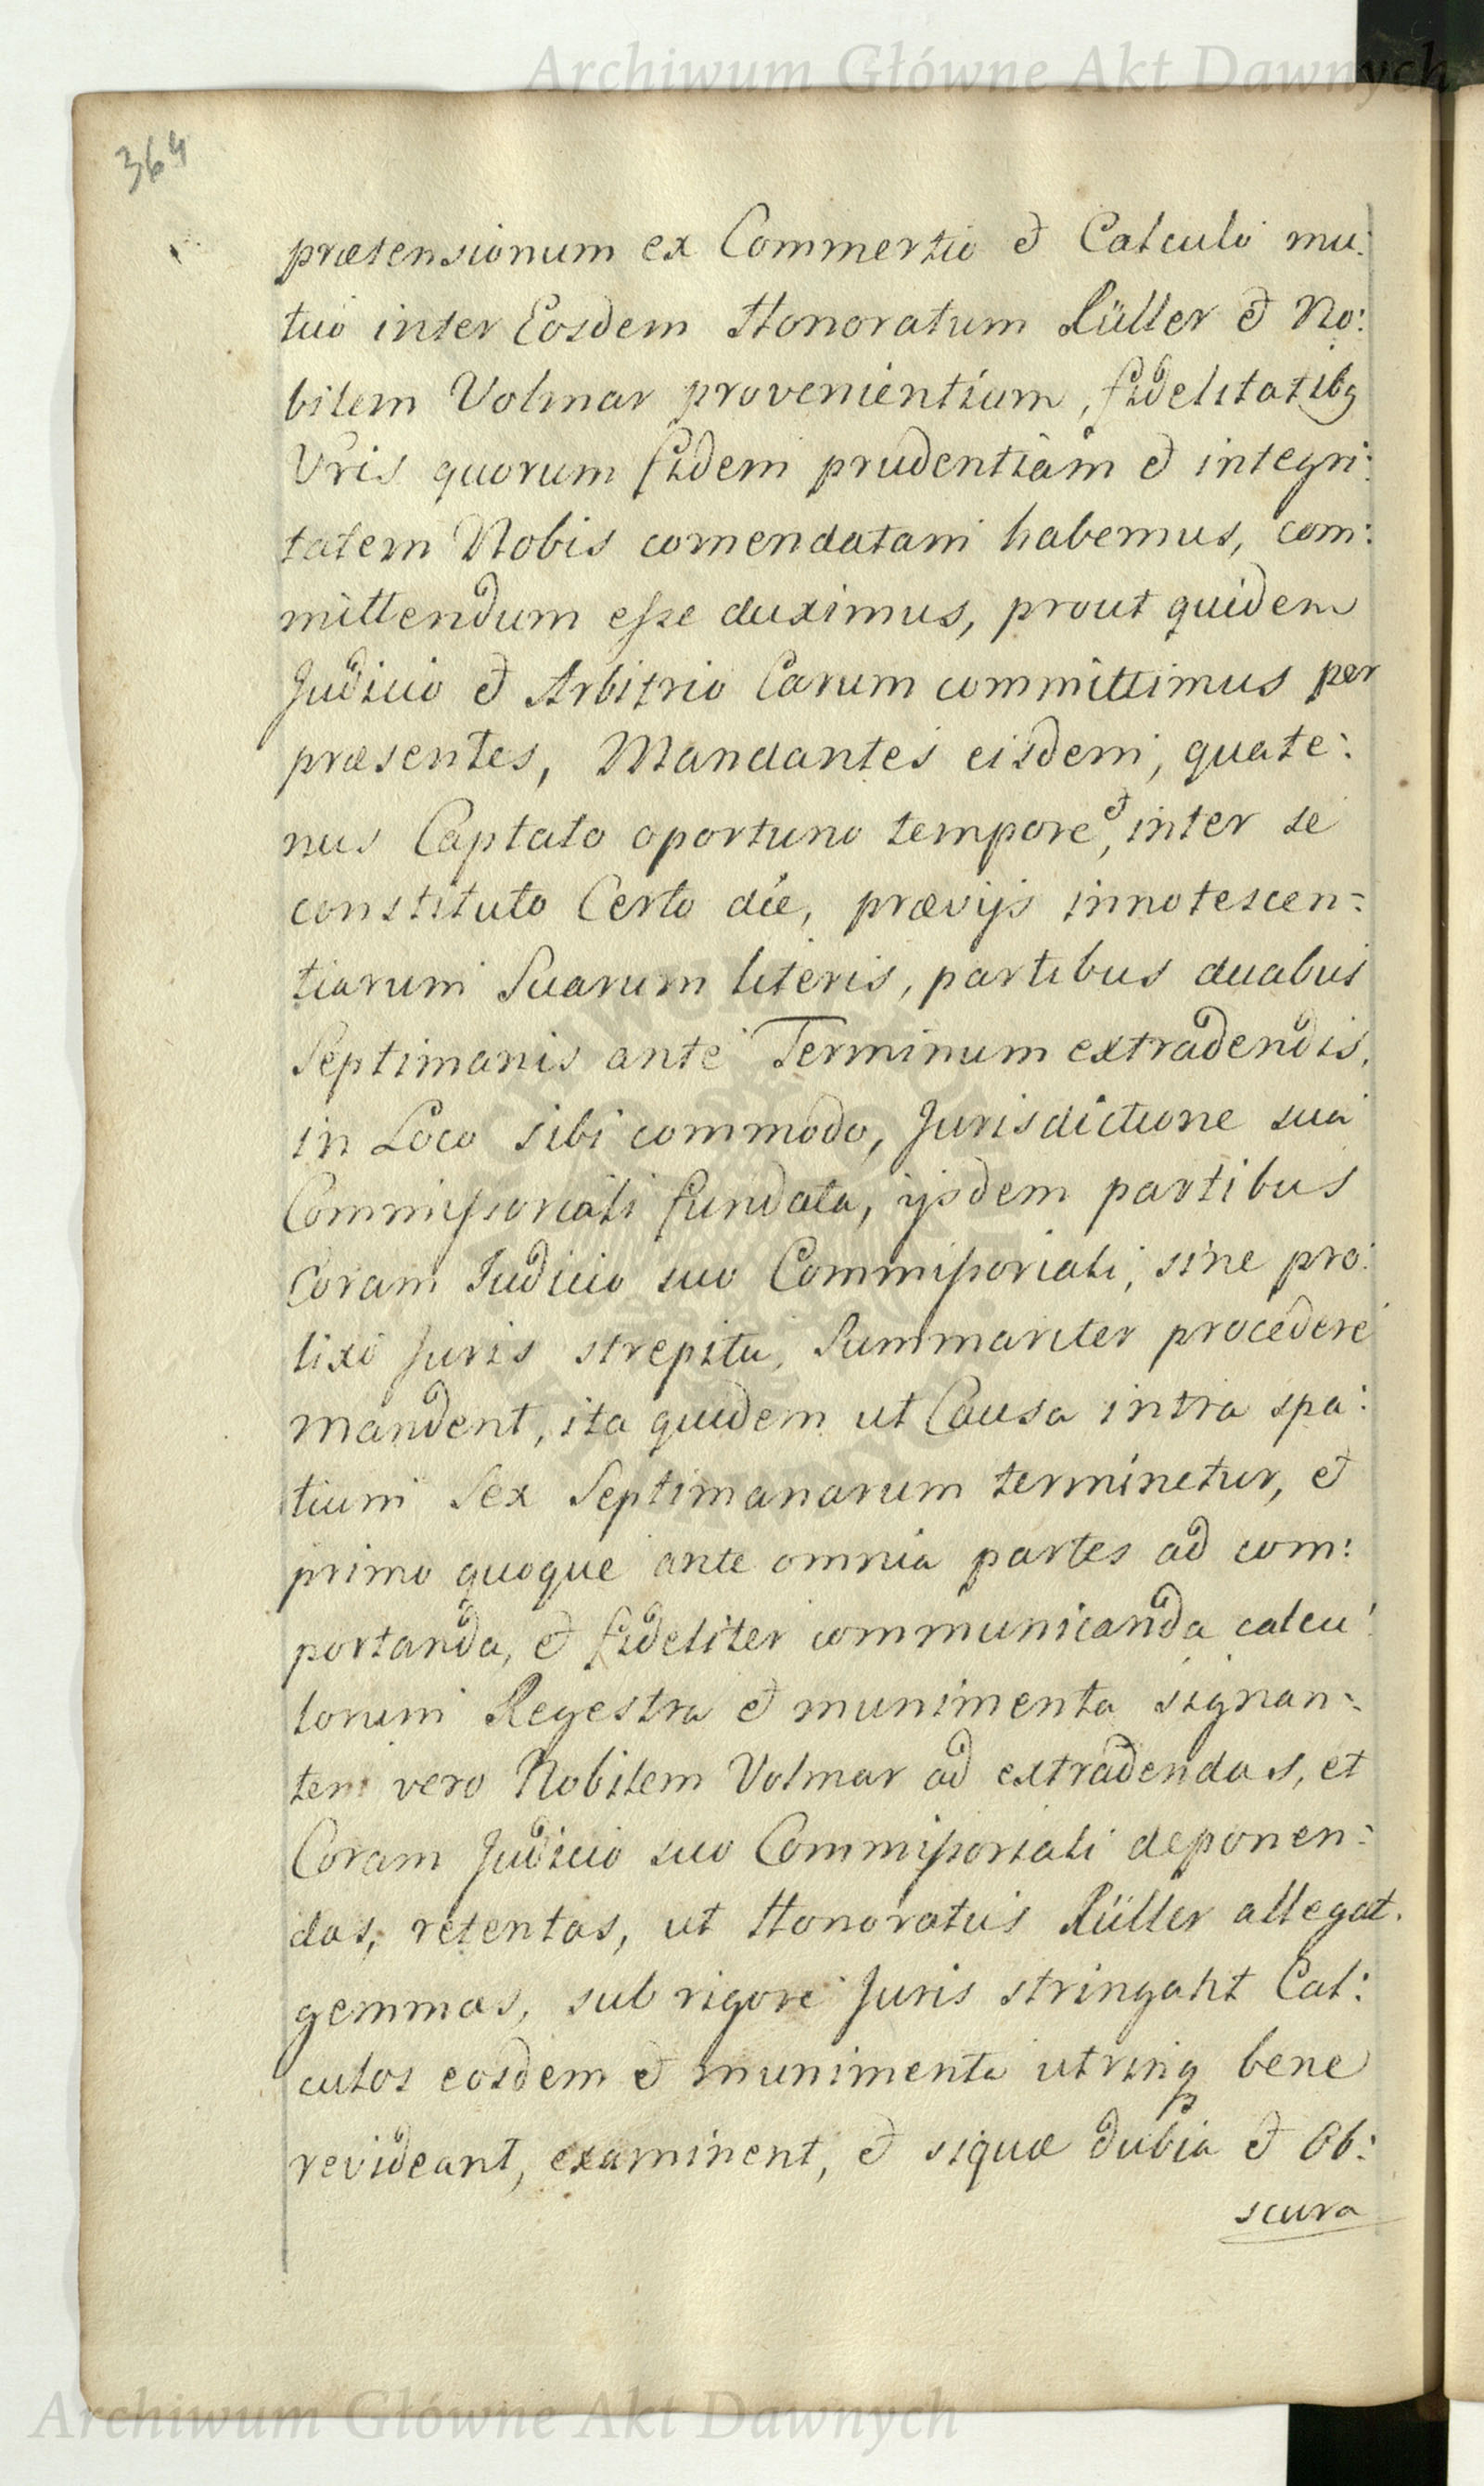 Archiwum Główne Akt Dawnych
364
prætensionum ex Commertio et Calculo mu:
tuo inter Eosdem Honoratum Rüller et No:
bilem Volmar provenientium, fidelitatibq
Vris quorum fidem prudentiam et integri:
tatem Nobis comendatam habemus, com:
mittendum esse duximus, prout quidem
Judicio et Arbitrio Earum committimus per
præsentes, Mandantes eisdem, quate:
nus Captato oportuno tempore, et inter se
constituto Certo die, prævijs innotescen=
tiarum Suarum literis, partibus duabus
Septimanis ante Terminum extradendis,
in Loco sibi commodo, Jurisdictione sua
Commissoriali fundata, ijsdem partibus
Coram Judicio suo Commissoriali, sine pro:
lixo Juris strepitu, Summariter procedere
mandent, ita quidem ut Causa intra spa:
tium Sex Septimanarum terminetur, et
primo quoque ante omnia partes ad com:
portanda, et fideliter communicanda calcu:
lorum Regestra et munimenta signan=
ter vero Nobilem Volmar ad extradendas, et
Coram Judicio suo Commissoriali deponen=
das, retentas, ut Honoratus Rüller allegat.
gemmas, sub rigore Juris stringant Cal:
culos eosdem et munimenta utrinq bene
revideant, examinent, et siquæ dubia et Ob:
scura
Archiwum Główne Akt Dawnych